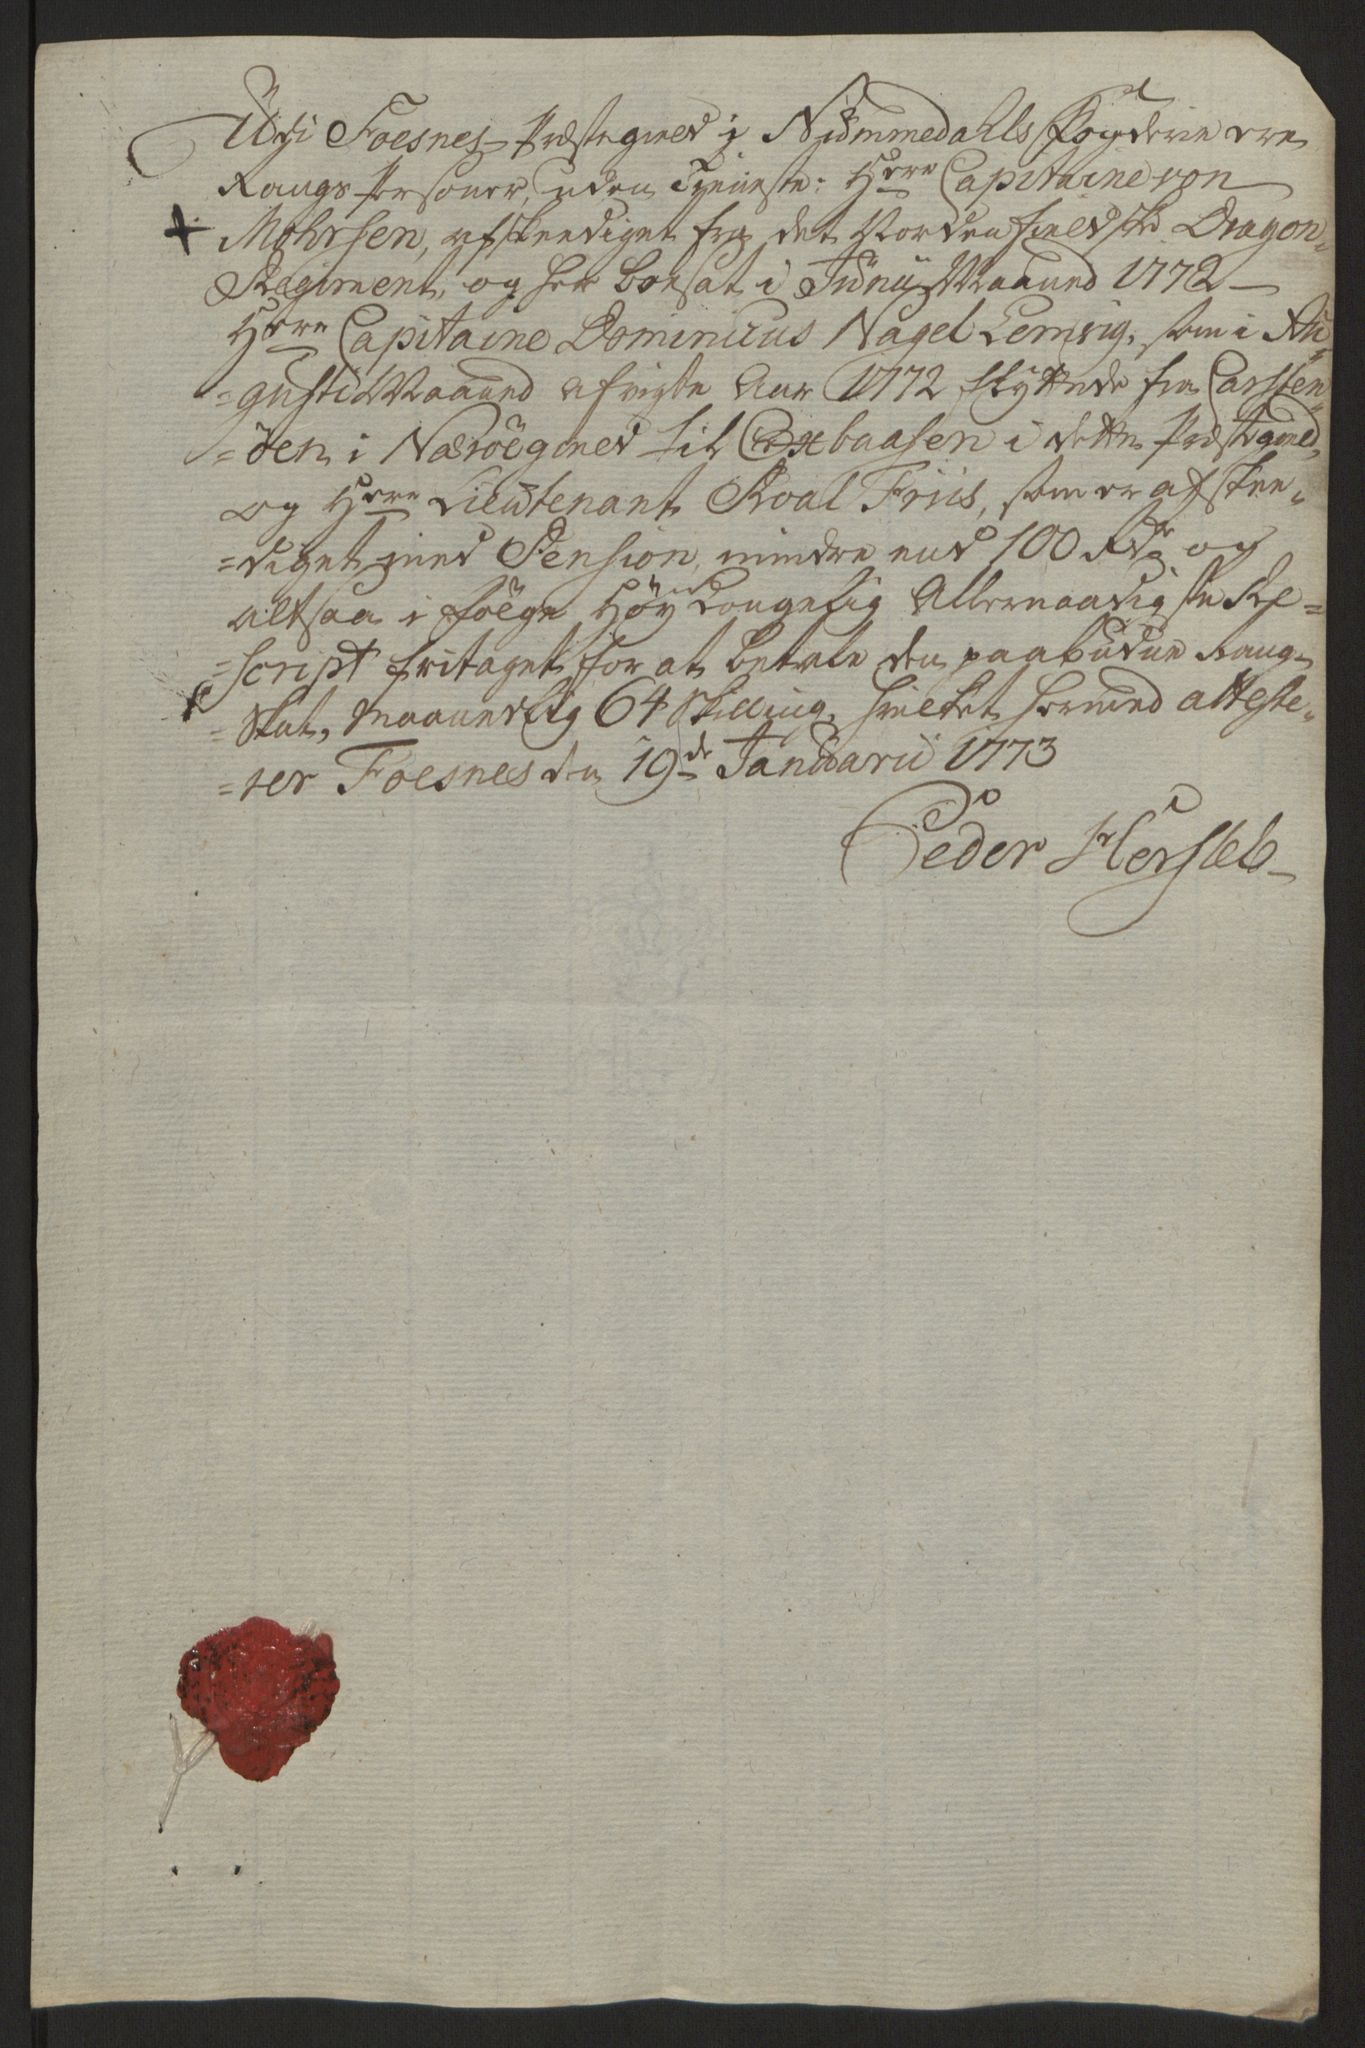 Udi Foesnes Præstegield i Nummedahls Fogderie ere
Rangs Personer, uden Tieneste: Herr Capitaine von
Mohrsen, afskeediget fra det Nordenfieldske Dragon-
Regiment, og her boesat i Junii Maaned 1772 –
Herr Capitaine Dominicus Nagel Lemvig, som i Au-
=gusti Maaned afvigte Aar 1772 flyttede fra Carsten-
=öen i Næröegield til baasen i dette Præstegield,
og Herr Lieutenant Roal Friis, som er afskee-
=diget med Pension, mindre end 100 Rdr og
altsaa i fölge Höy Kongelig Allernaadigste Re=
=script fritaget for at betale den paabudne Rang-
=Skat, Maanedlig 64 Skilling, hvilket hermed atteste-
=rer Foesnes den 19de Januarii 1773
Peder Hersleb